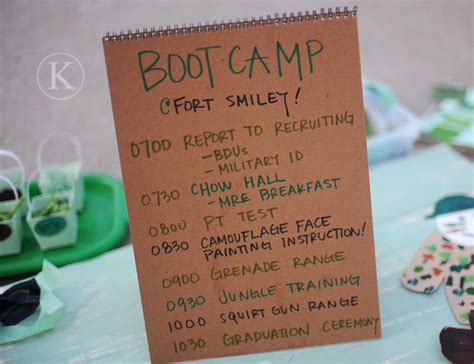 BOOT CAMP
@FORT SMILEY!
0700 REPORT TO RECRUITING
-BDUs
-MILITARY ID
0730 CHOW HALL
-MRE BREAKFAST
0800 PT TEST
0830 CAMOUFLAGE FACE
PAINTING INSTRUCTION!
0900 GRENADE RANGE
0930 JUNGLE TRAINING
1000 SQUIRT GUN RANGE
1030 GRADUATION CEREMONY
K